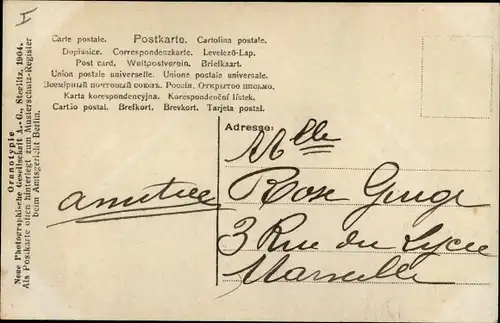 I
Carte postale. Postkarte. Cartolina postale.
Dopisnice. Correspondenzkarte. Levelező-Lap.
Post card. Weltpostverein. Briefkaart.
Union postale universelle. Unione postale universale.
Всемірный почтовый союзъ. Россія. Открытое письмо.
Karta korespondencyjna. Korespondenční lístek.
Cartão postal. Brefkort. Brevkort. Tarjeta postal.
Adresse:
Mlle
Rose
3 Rue du Lycée
Marseille
Oranotypie
Neue Photographische Gesellschaft A.-G., Steglitz, 1904.
Als Postkarte offen hinterlegt zum Musterschutz-Register
beim Amtsgericht Berlin.